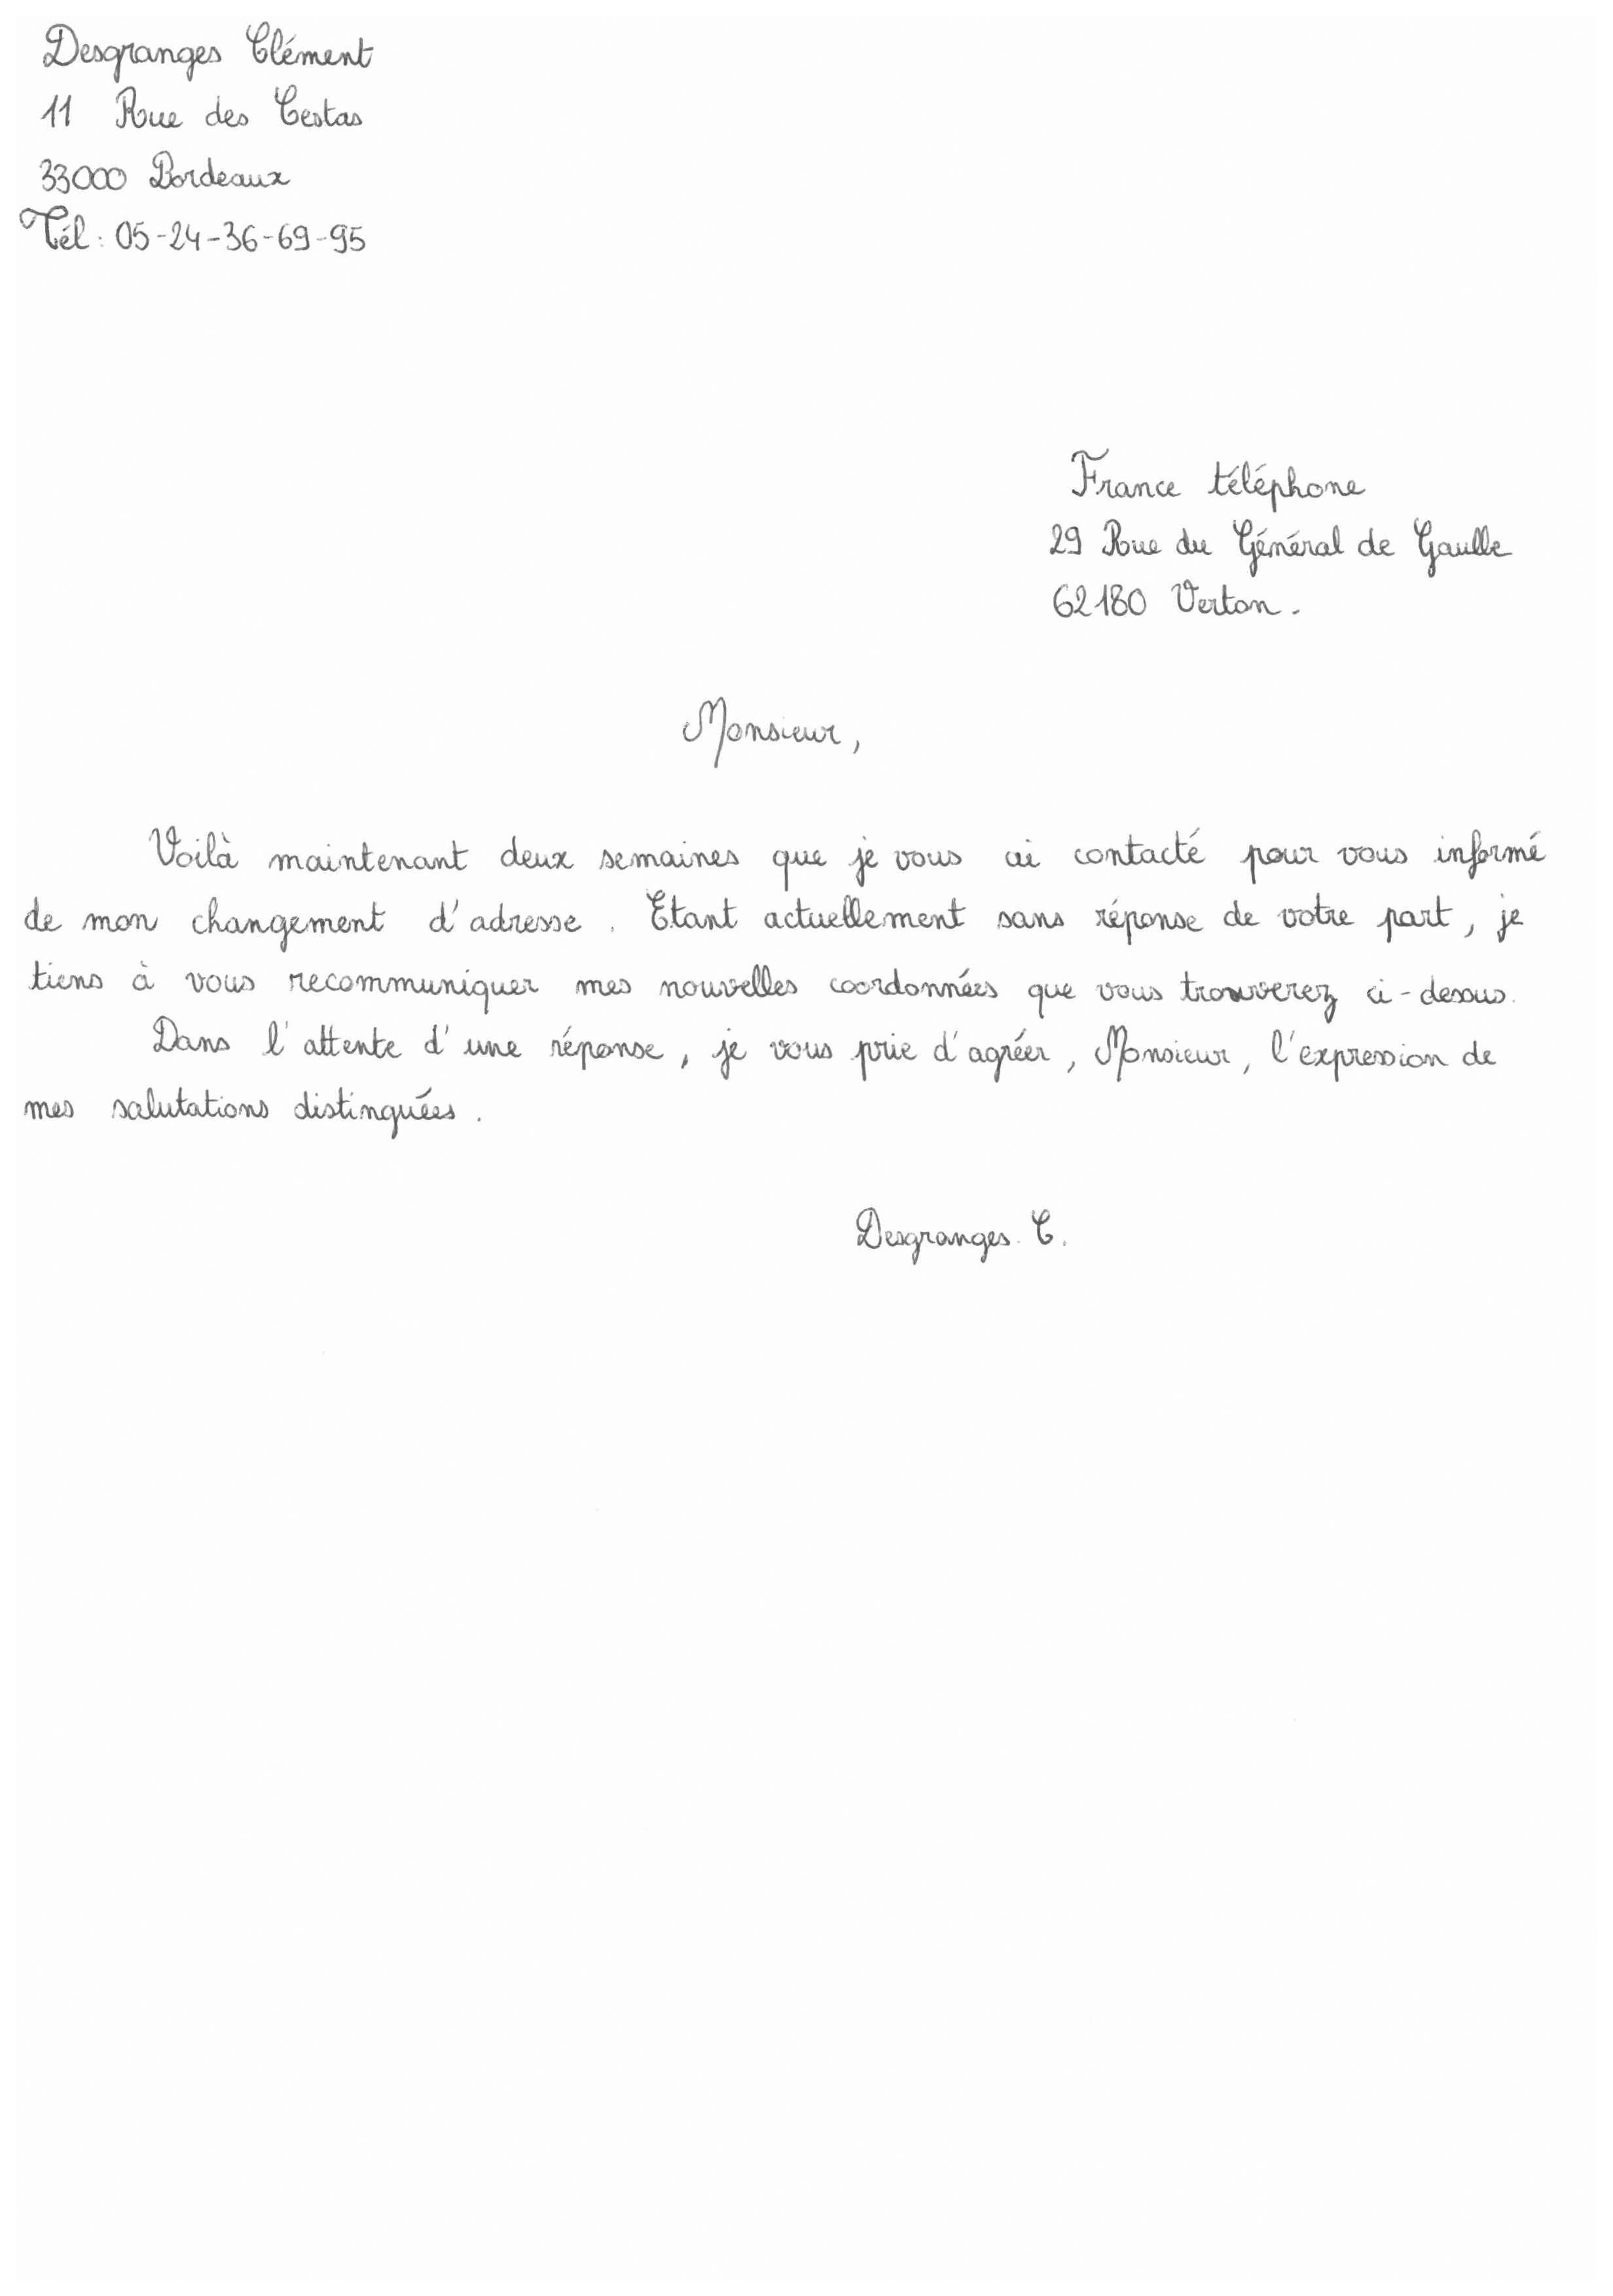 Desgranges Clément
11 Rue des Cestas
33000 Bordeaux
Tél : 05-24-36-69-95
France téléphone
29 Rue du Général de Gaulle
62180 Verton.
Monsieur,
Voilà maintenant deux semaines que je vous ai contacté pour vous informé
de mon changement d'adresse. Etant actuellement sans réponse de votre part, je
tiens à vous recommuniquer mes nouvelles coordonnées que vous trouverez ci-dessus.
Dans l'attente d'une réponse, je vous prie d'agréer, Monsieur, l'expression de
mes salutations distinguées.
Desgranges. C.